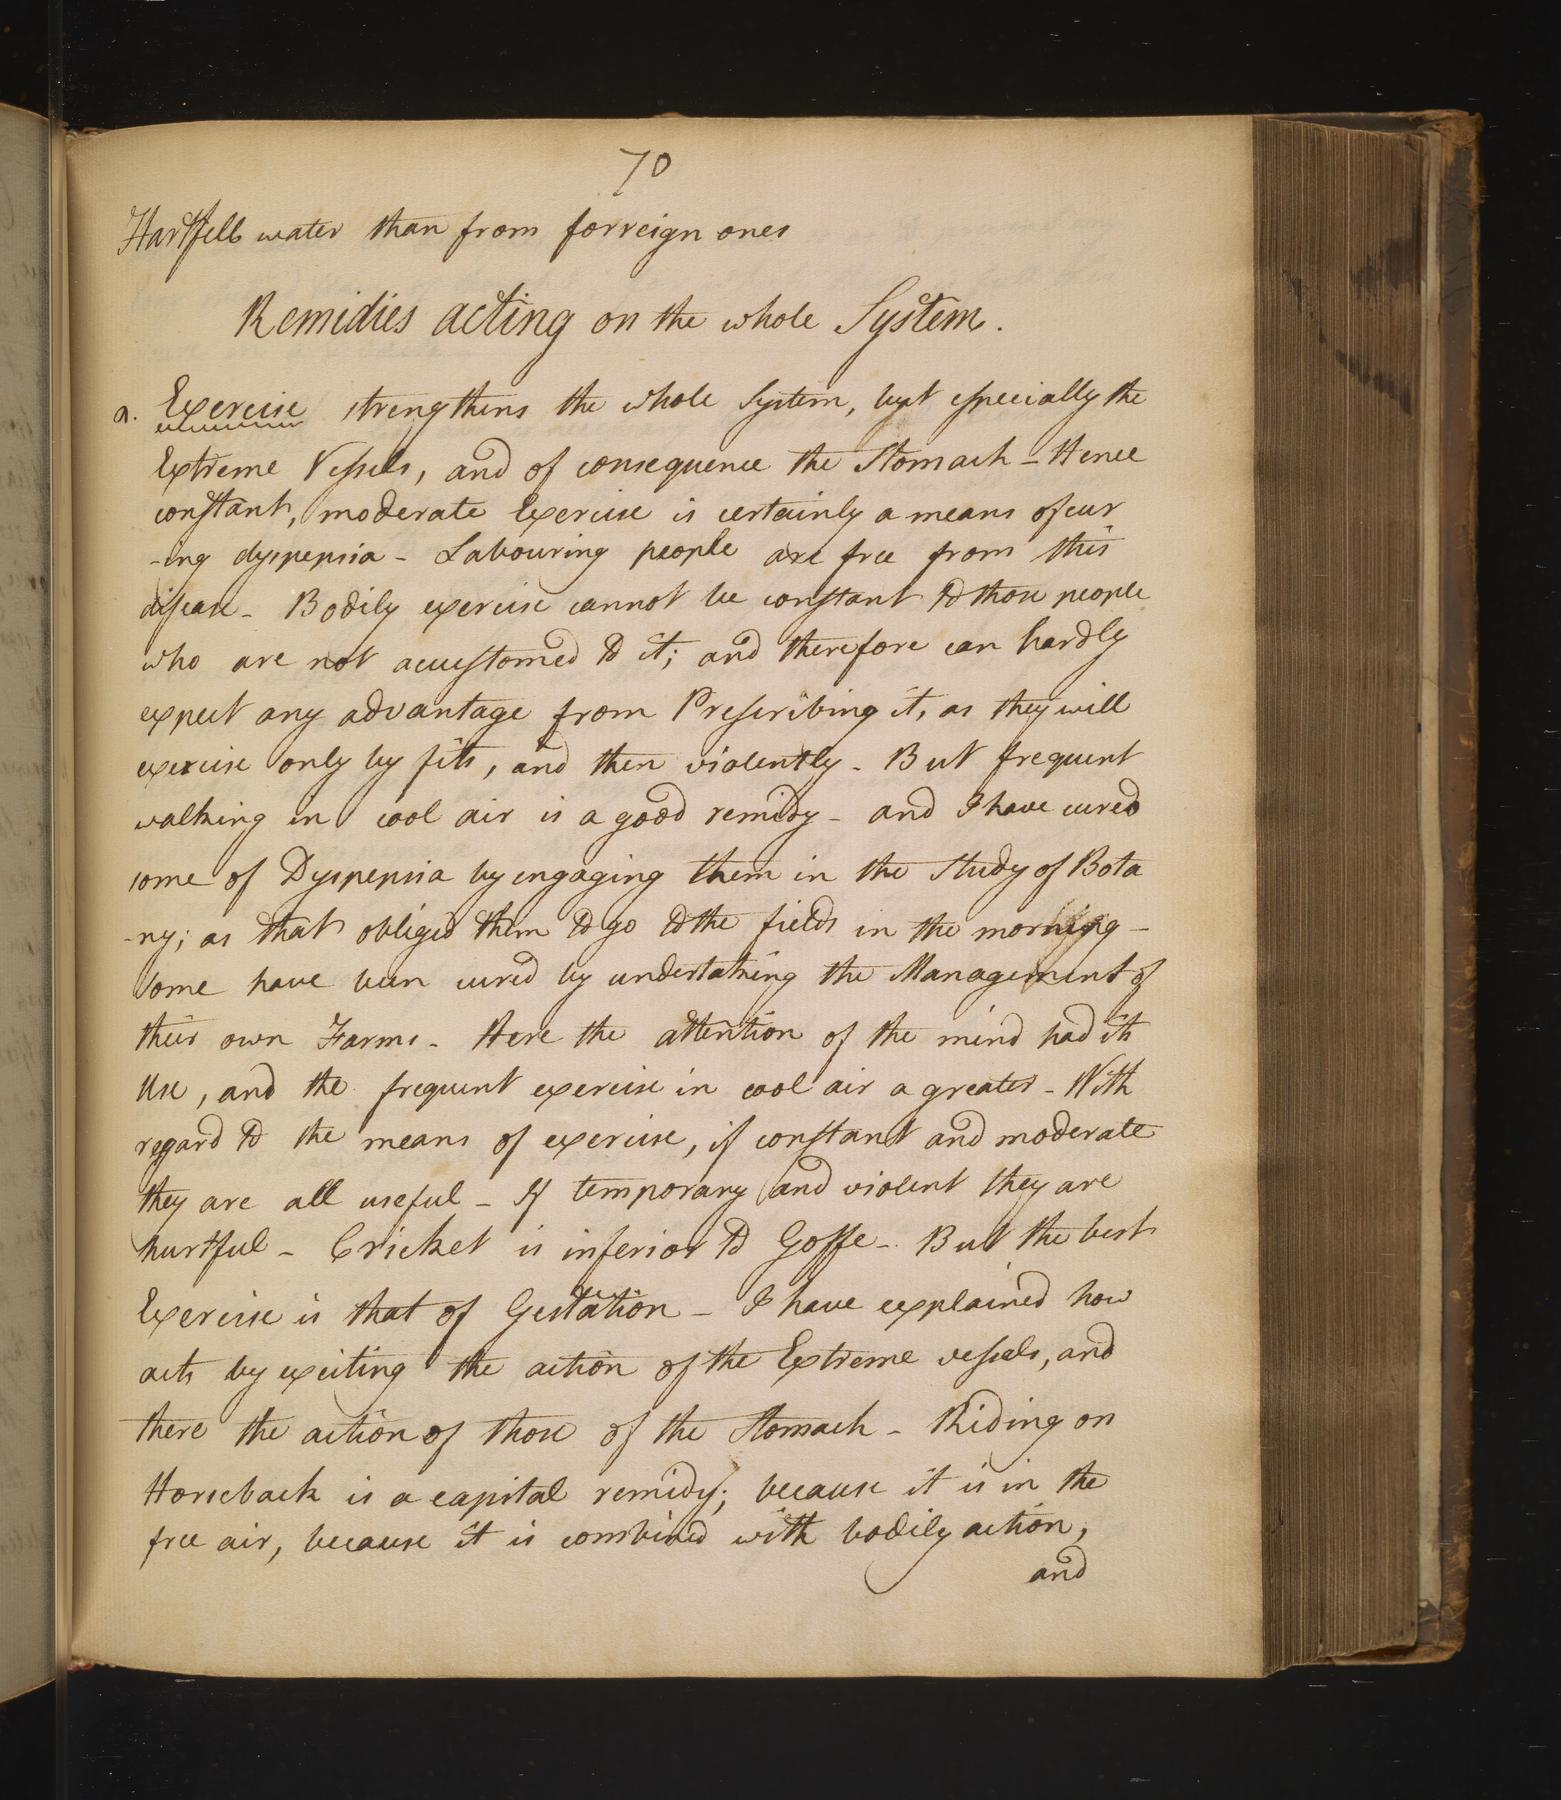 70
Hartfell water than from forreign ones
Remidies acting on the whole System.
a. Exercise strengthens the whole System, but especially the
Extreme Vessels, and of consequence the Stomach - Hence
constant, moderate Exercise is certainly a means of cur
-ing dyspepsia - Labouring people are free from this
disease - Bodily exercise cannot be constant to those people
who are not accustomed to it; and therefore can hardly
expect any advantage from Prescribing it, as they will
exercise only by fits, and then violently - But frequent
walking in cool air is a good remidy - and I have cured
some of Dyspepsia by engaging them in the Study of Bota
-ny; as that obliged them to go to the fields in the morning -
Some have been cured by undertaking the Management of
their own Farms - Here the attention of the mind had its
Use, and the frequent exercise in cool air a greater - With
regard to the means of exercise, if constant and moderate
they are all useful - If temporary and violent they are
hurtful - Cricket is inferior to Goffe - But the best
Exercise is that of Gestation - I have explained how
acts by exciting the action of the Extreme vessels, and
there the action of those of the Stomach - Riding on
Horseback is a capital remidy; because it is in the
free air, because it is combined with bodily action,
and